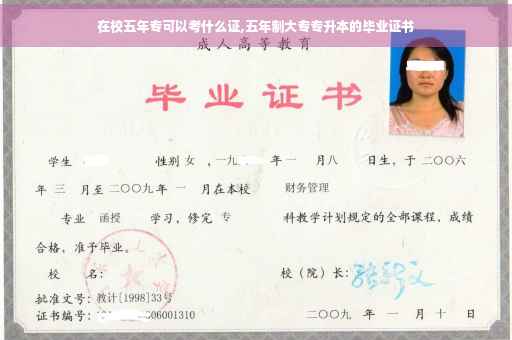 在校五年专可以考什么证,五年制大专专升本的毕业证书
成人高等教育
毕业证书
学生 性别 女 ,一九 年一 月八 日生,于二〇〇六
年 三 月至二〇〇九年 一 月在本校 财务管理
专业 函授 学习,修完 专 科教学计划规定的全部课程,成绩
合格,准予毕业。
校 名: 校(院)长:
批准文号:教计[1998]33号
证书编号: 06001310 二〇〇九 年 一 月 十 日